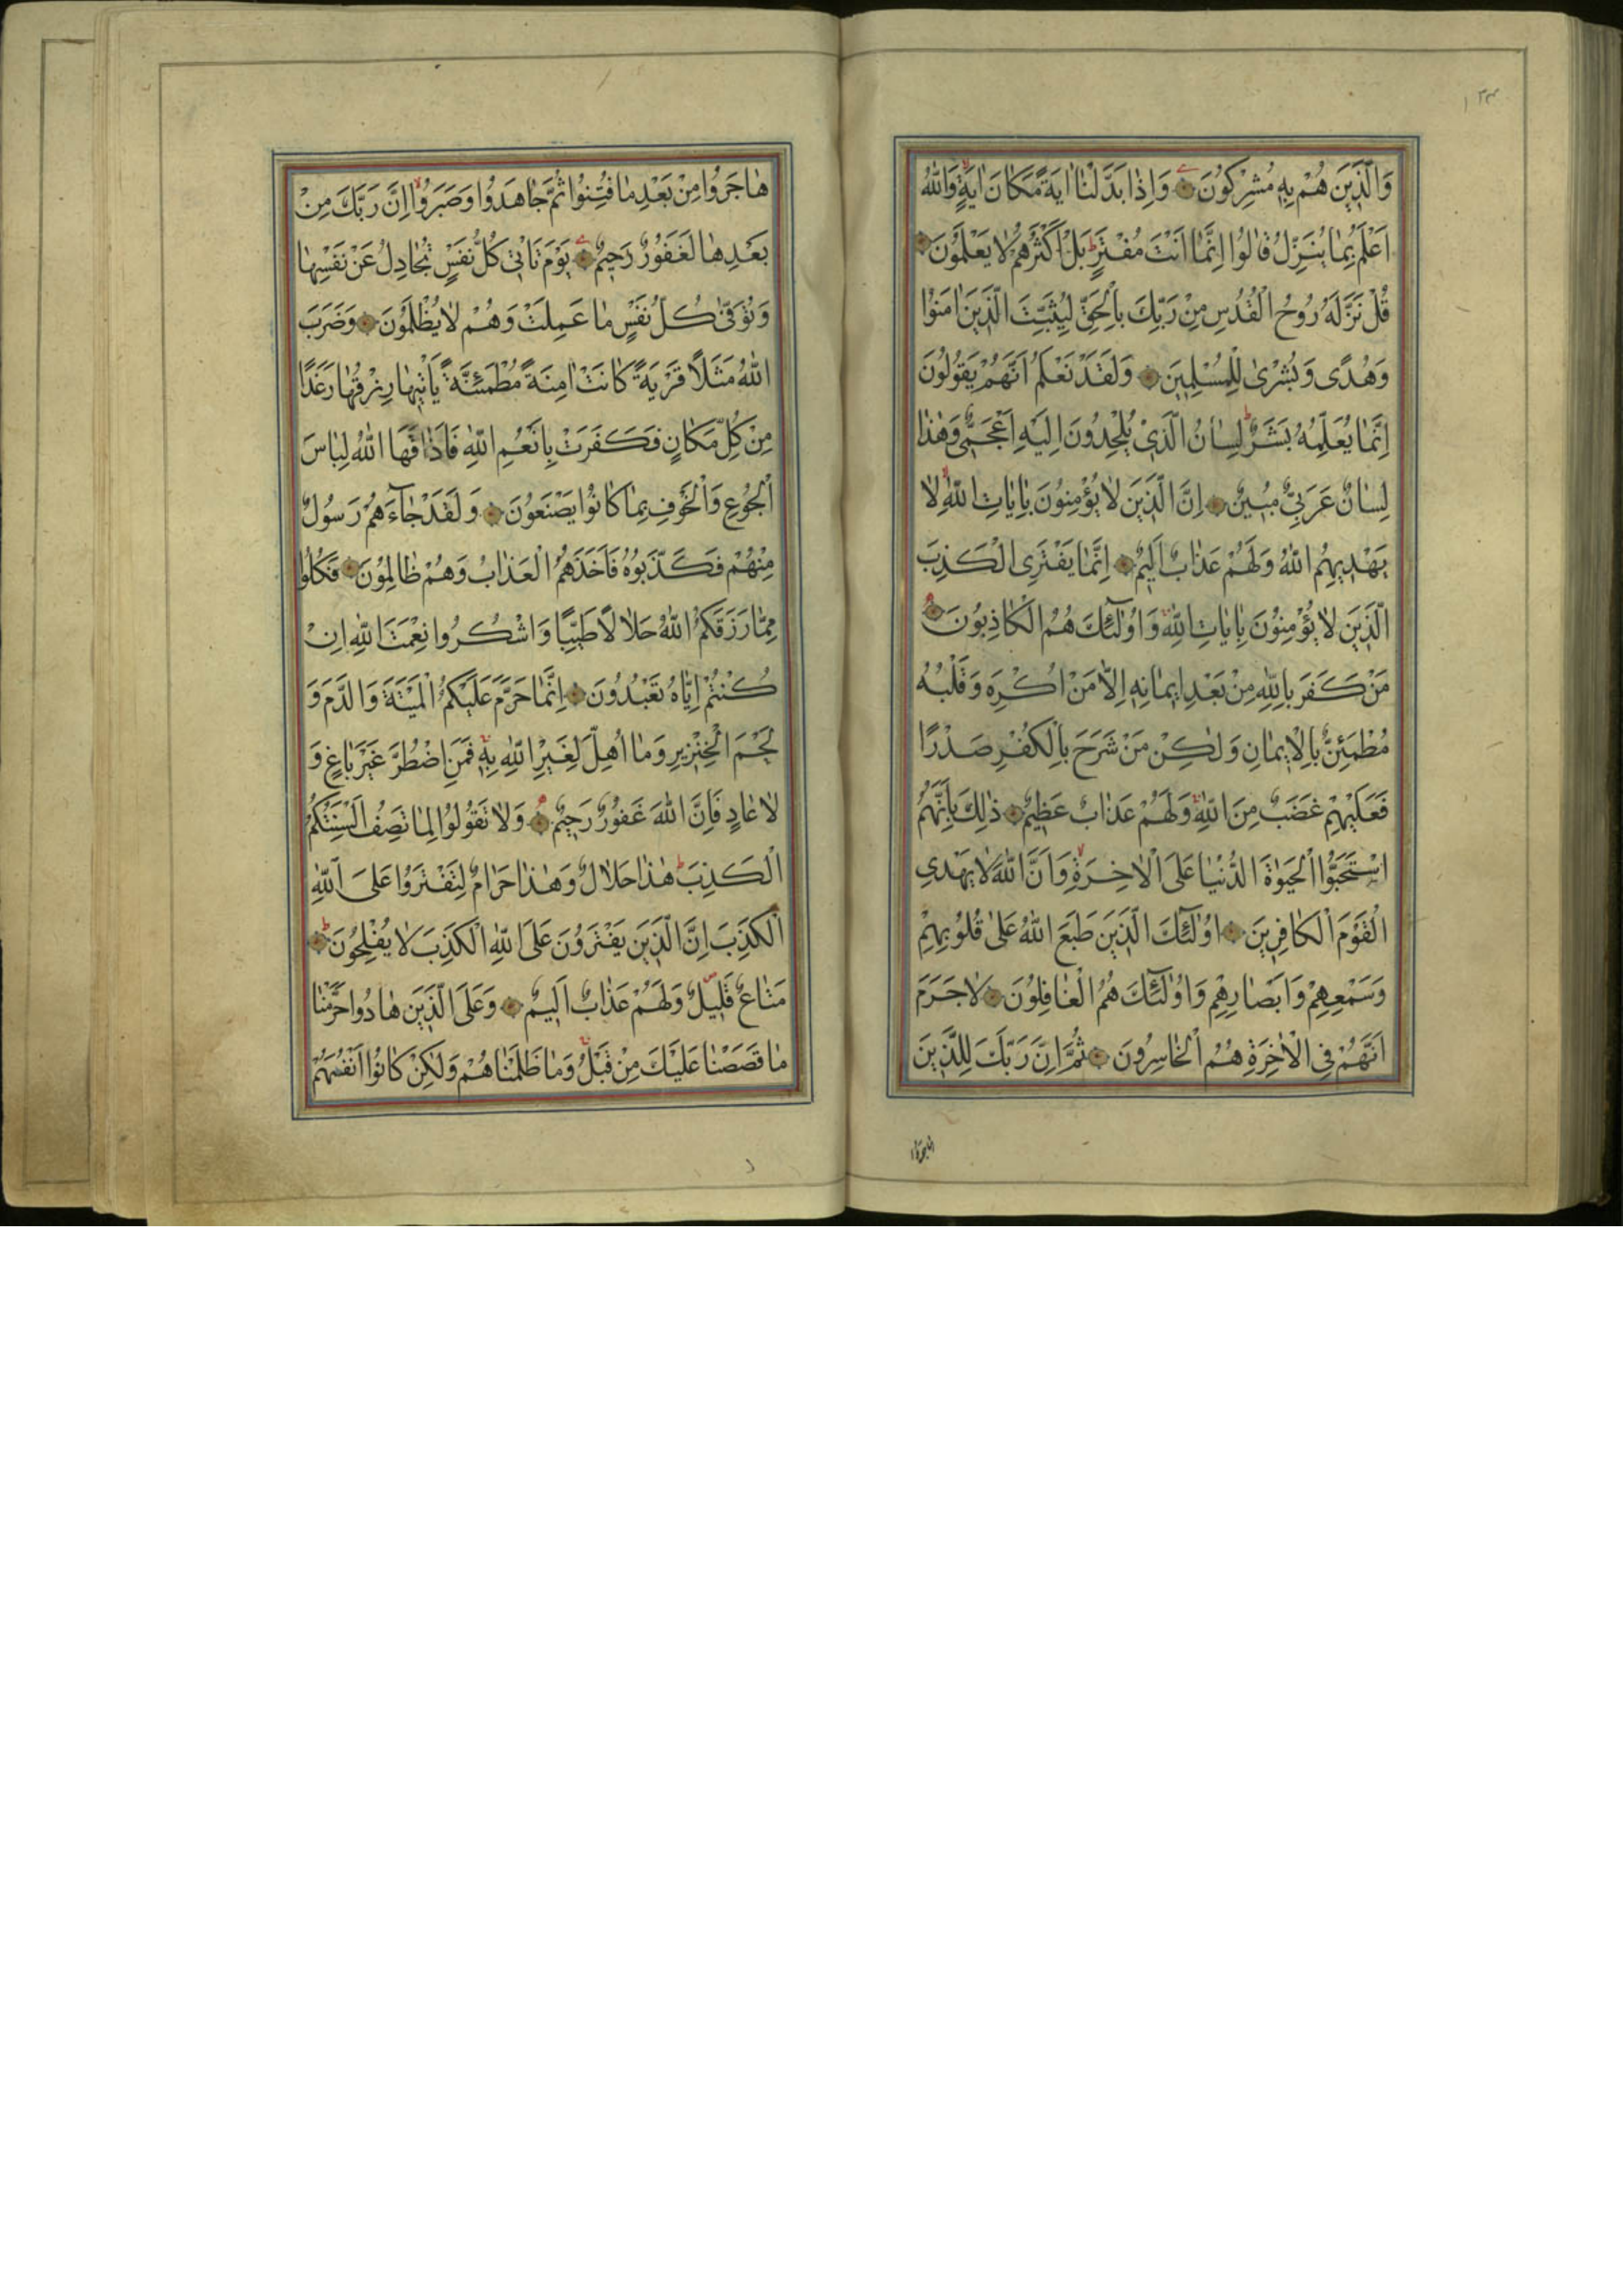 ١٣٣
وَالَّذِينَ هُمْ بِهِ مُشْرِكُونَ وَإِذَا بَدَّلْنَا اٰيَةً مَكَانَ اٰيَةٍ وَاللّٰهُ
اَعْلَمُ بِمَا يُنَزِّلُ قَالُوا اِنَّمَا اَنْتَ مُفْتَرٍ بَلْ اَكْثَرُهُمْ لَا يَعْلَمُونَ
قُلْ نَزَّلَهُ رُوحُ الْقُدُسِ مِنْ رَبِّكَ بِالْحَقِّ لِيُثَبِّتَ الَّذِينَ اٰمَنُوا
وَهُدًى وَبُشْرٰى لِلْمُسْلِمِينَ وَلَقَدْ نَعْلَمُ اَنَّهُمْ يَقُولُونَ
اِنَّمَا يُعَلِّمُهُ بَشَرٌ لِسَانُ الَّذِي يُلْحِدُونَ اِلَيْهِ اَعْجَمِيٌّ وَهٰذَا
لِسَانٌ عَرَبِيٌّ مُبِينٌ اِنَّ الَّذِينَ لَا يُؤْمِنُونَ بِاٰيَاتِ اللّٰهِ لَا
يَهْدِيهِمُ اللّٰهُ وَلَهُمْ عَذَابٌ اَلِيمٌ اِنَّمَا يَفْتَرِى الْكَذِبَ
الَّذِينَ لَا يُؤْمِنُونَ بِاٰيَاتِ اللّٰهِ وَاُولٰٓئِكَ هُمُ الْكَاذِبُونَ
مَنْ كَفَرَ بِاللّٰهِ مِنْ بَعْدِ اِيمَانِهِ اِلَّا مَنْ اُكْرِهَ وَقَلْبُهُ
مُطْمَئِنٌّ بِالْاِيمَانِ وَلٰكِنْ مَنْ شَرَحَ بِالْكُفْرِ صَدْرًا
فَعَلَيْهِمْ غَضَبٌ مِنَ اللّٰهِ وَلَهُمْ عَذَابٌ عَظِيمٌ ذٰلِكَ بِاَنَّهُمُ
اسْتَحَبُّوا الْحَيٰوةَ الدُّنْيَا عَلَى الْاٰخِرَةِ وَاَنَّ اللّٰهَ لَا يَهْدِي
الْقَوْمَ الْكَافِرِينَ اُولٰٓئِكَ الَّذِينَ طَبَعَ اللّٰهُ عَلٰى قُلُوبِهِمْ
وَسَمْعِهِمْ وَاَبْصَارِهِمْ وَاُولٰٓئِكَ هُمُ الْغَافِلُونَ لَا جَرَمَ
اَنَّهُمْ فِي الْاٰخِرَةِ هُمُ الْخَاسِرُونَ ثُمَّ اِنَّ رَبَّكَ لِلَّذِينَ
هَاجَرُوا مِنْ بَعْدِ مَا فُتِنُوا ثُمَّ جَاهَدُوا وَصَبَرُوا اِنَّ رَبَّكَ مِنْ
بَعْدِهَا لَغَفُورٌ رَحِيمٌ يَوْمَ تَاْتِي كُلُّ نَفْسٍ تُجَادِلُ عَنْ نَفْسِهَا
وَتُوَفّٰى كُلُّ نَفْسٍ مَا عَمِلَتْ وَهُمْ لَا يُظْلَمُونَ وَضَرَبَ
اللّٰهُ مَثَلًا قَرْيَةً كَانَتْ اٰمِنَةً مُطْمَئِنَّةً يَاْتِيهَا رِزْقُهَا رَغَدًا
مِنْ كُلِّ مَكَانٍ فَكَفَرَتْ بِاَنْعُمِ اللّٰهِ فَاَذَاقَهَا اللّٰهُ لِبَاسَ
الْجُوعِ وَالْخَوْفِ بِمَا كَانُوا يَصْنَعُونَ وَلَقَدْ جَآءَهُمْ رَسُولٌ
مِنْهُمْ فَكَذَّبُوهُ فَاَخَذَهُمُ الْعَذَابُ وَهُمْ ظَالِمُونَ فَكُلُوا
مِمَّا رَزَقَكُمُ اللّٰهُ حَلَالًا طَيِّبًا وَاشْكُرُوا نِعْمَتَ اللّٰهِ اِنْ
كُنْتُمْ اِيَّاهُ تَعْبُدُونَ اِنَّمَا حَرَّمَ عَلَيْكُمُ الْمَيْتَةَ وَالدَّمَ وَ
لَحْمَ الْخِنْزِيرِ وَمَا اُهِلَّ لِغَيْرِ اللّٰهِ بِهِ فَمَنِ اضْطُرَّ غَيْرَ بَاغٍ وَ
لَا عَادٍ فَاِنَّ اللّٰهَ غَفُورٌ رَحِيمٌ وَلَا تَقُولُوا لِمَا تَصِفُ اَلْسِنَتُكُمُ
الْكَذِبَ هٰذَا حَلَالٌ وَهٰذَا حَرَامٌ لِتَفْتَرُوا عَلَى اللّٰهِ
الْكَذِبَ اِنَّ الَّذِينَ يَفْتَرُونَ عَلَى اللّٰهِ الْكَذِبَ لَا يُفْلِحُونَ
مَتَاعٌ قَلِيلٌ وَلَهُمْ عَذَابٌ اَلِيمٌ وَعَلَى الَّذِينَ هَادُوا حَرَّمْنَا
مَا قَصَصْنَا عَلَيْكَ مِنْ قَبْلُ وَمَا ظَلَمْنَاهُمْ وَلٰكِنْ كَانُوا اَنْفُسَهُمْ